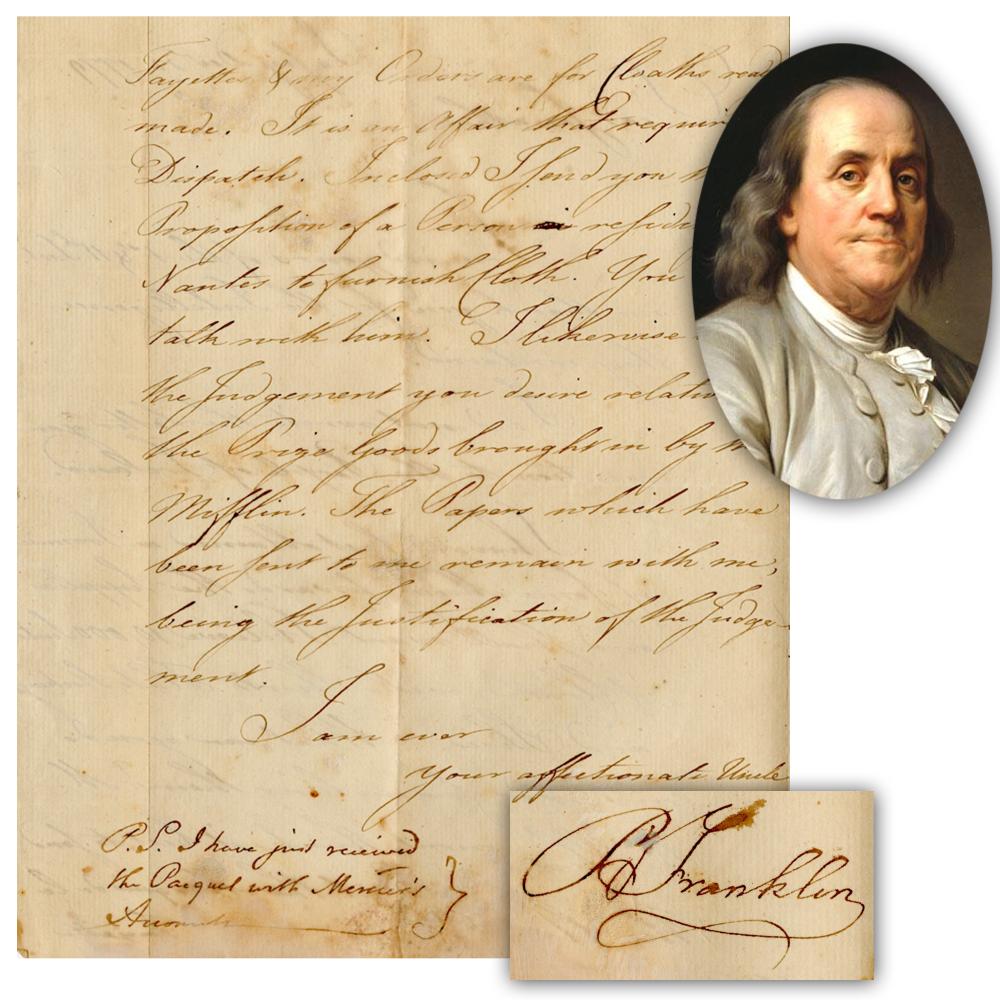 Fayette, & my Orders are for Cloaths read
made. It is an Affair that requir
Dispatch. Inclosed I send you
Proposition of a Person resid
Nantes to furnish Cloth. You
talk with him. I likewise
the Judgement you desire relativ
the Prize Goods brought in by
Mifflin. The Papers which have
been sent to me remain with me,
being the Justification of the Judge-
ment.
I am ever
your affectionate Uncle
B Franklin
P.S. I have just received
the Pacquet with Mercier's
Accounts